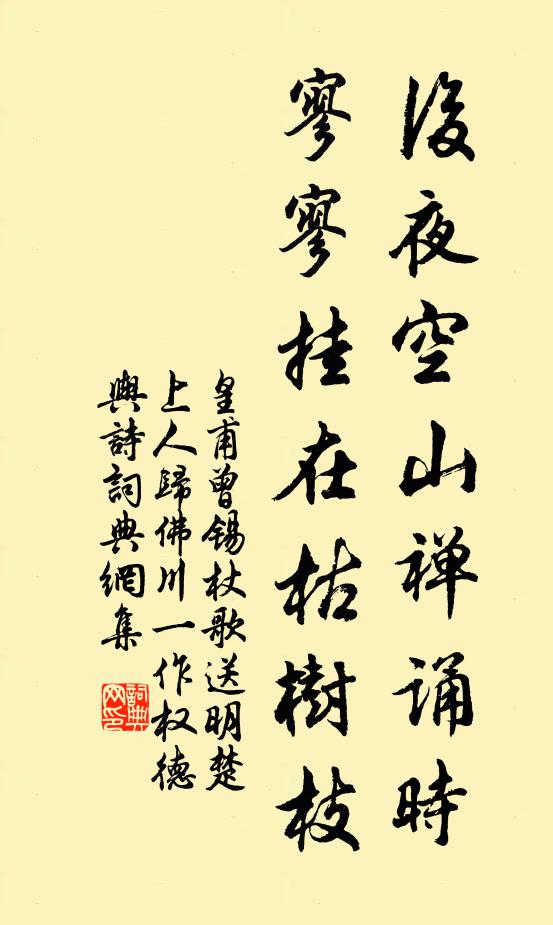 後夜空山禅诵時
寥寥挂在枯樹枝
皇甫曾錫杖歌送明楚
上人歸佛川一作权德
輿詩詞典網集
詞典
网印